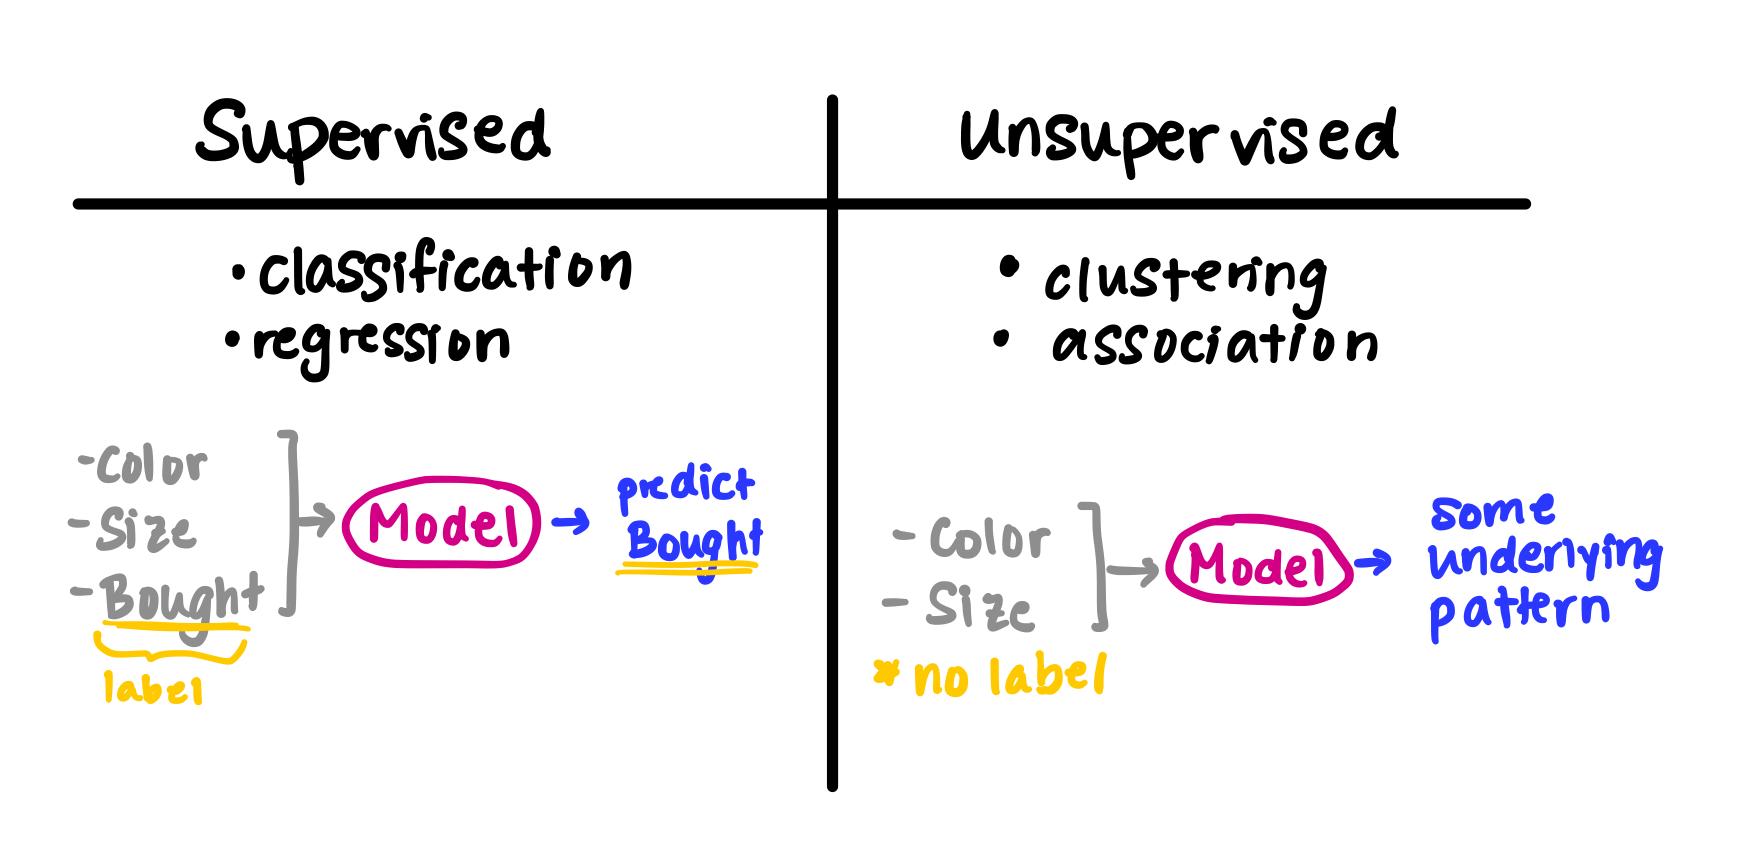 Supervised
• classification
• regression
- Color
- Size
- Bought
label
Model
predict
Bought
Unsupervised
• clustering
• association
- Color
- Size
* no label
Model
some
underlying
pattern